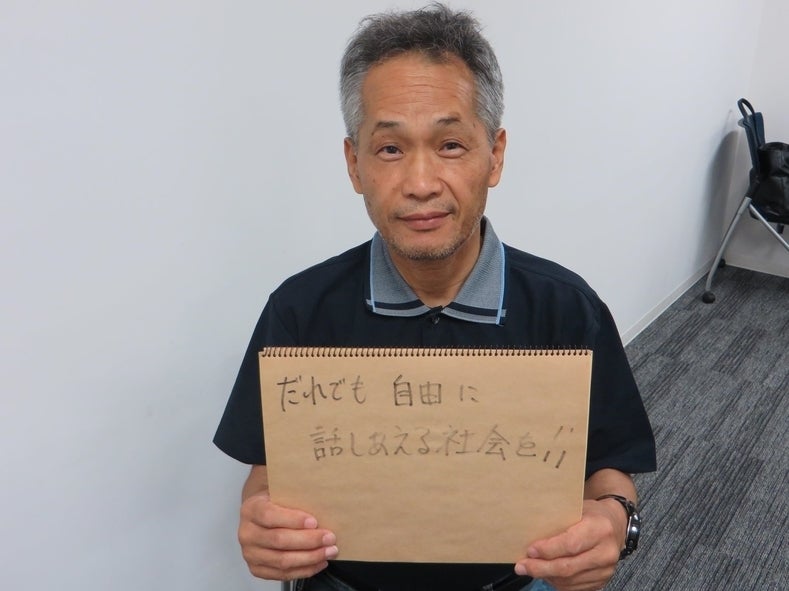 だれでも 自由に
話しあえる社会を!!